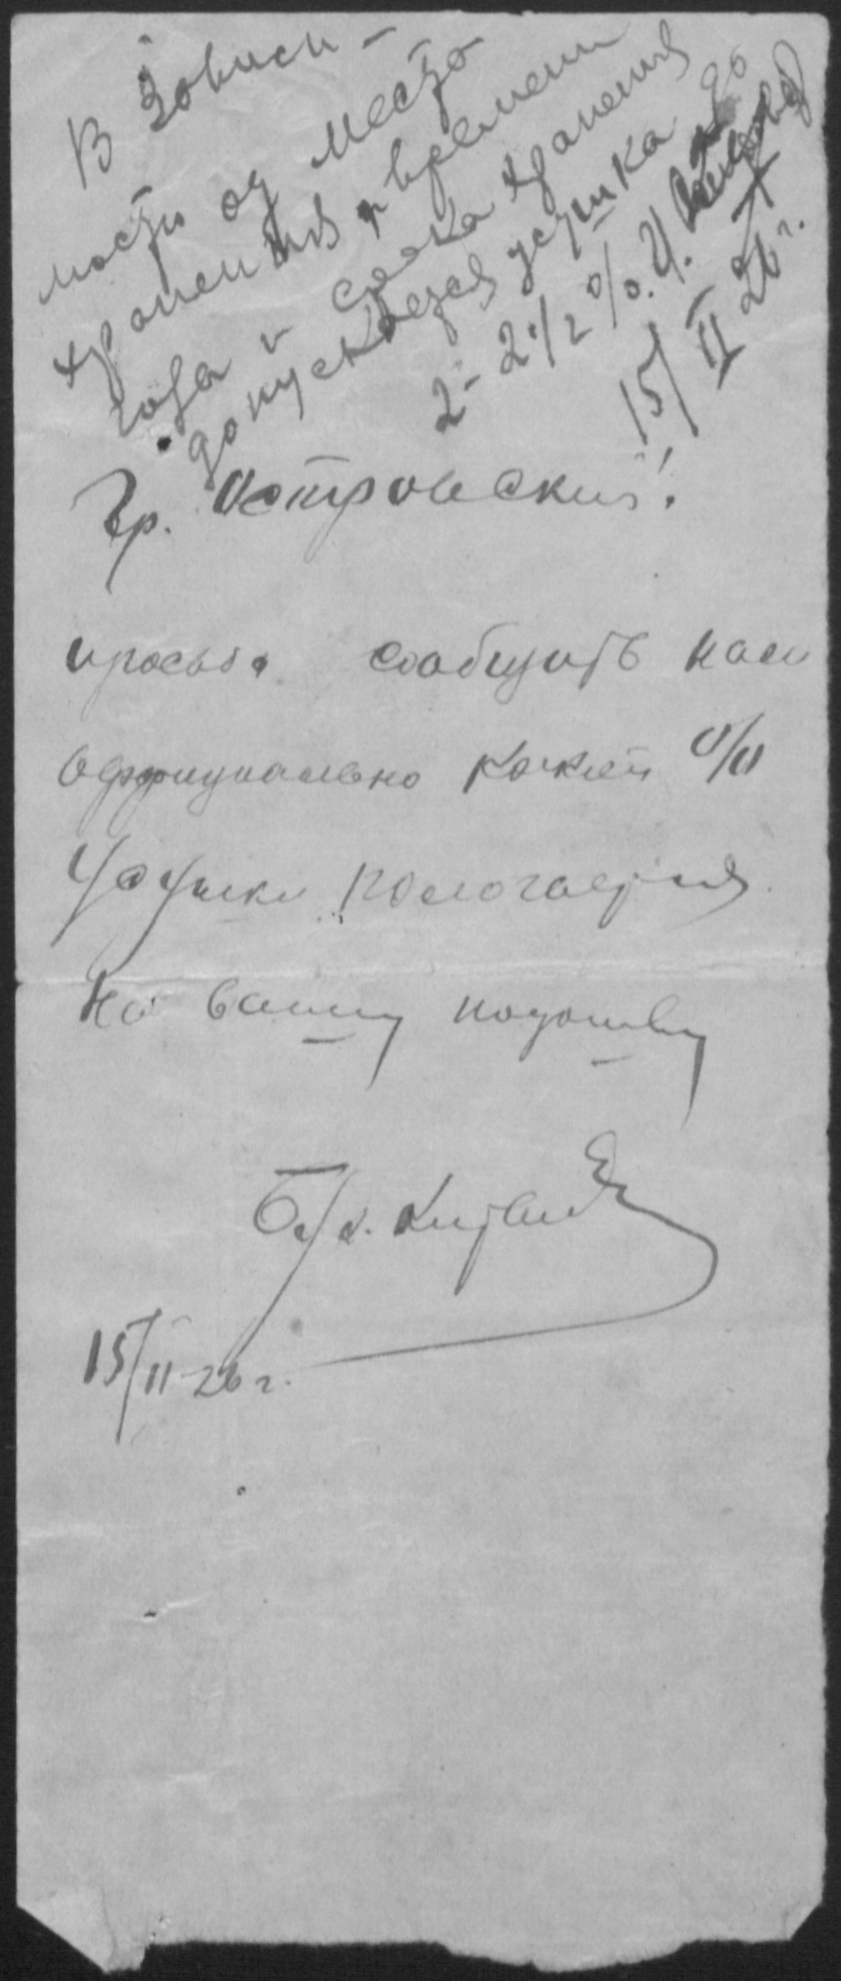 В зависи-
мости од место
хранения, времени
года и срока хранения
допускается усушка до
2-2 1/2 %. И.
15/II 26 г.
Гр. Островский!
просьба сообщить нам
оффициально какой %
Усушки пологается
на вашу подошву
Бух.
15/II-26 г.